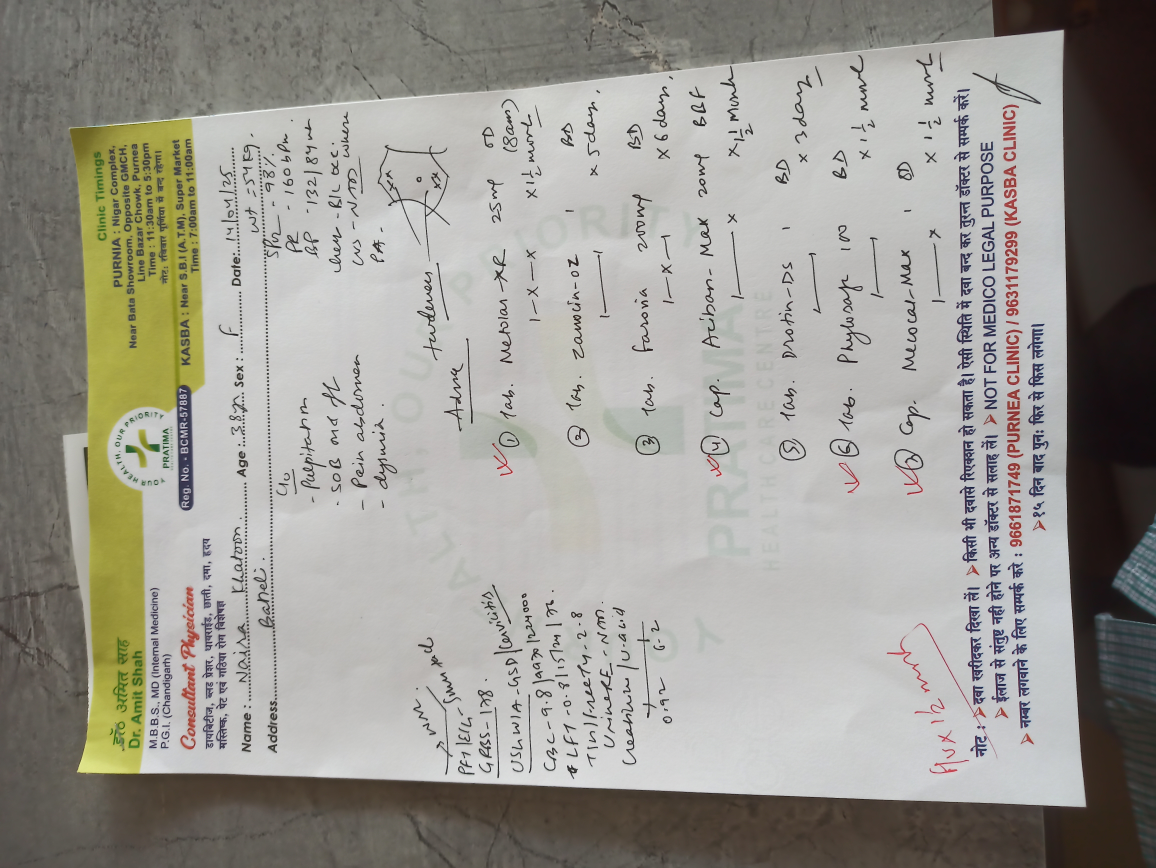 डॉ० अमित साह
Dr. Amit Shah
M.B.B.S., MD (Internal Medicine)
P.G.I. (Chandigarh)
Consultant Physician
डायबिटीज, ब्लड प्रेशर, थायराईड, छाती, दमा, हृदय
मस्तिष्क, पेट एवं गठिया रोग विशेषज्ञ
YOUR HEALTH, OUR PRIORITY
PRATIMA
Reg. No. - BCMR-57887
Clinic Timings
PURNIA : Nigar Complex,
Near Bata Showroom, Opposite GMCH,
Line Bazar Chowk, Purnea
Time : 11:30am to 5:30pm
नोट: रविवार पूर्णिया में बन्द रहेगा।
KASBA : Near S.B.I (A.T.M). Super Market
Time : 7:00am to 11:00am
Name : Naisa Khatoon. Age : 38y Sex : F Date: 14/04/25
Address Baneli.
wt - 54 kg.
C/o
- Palpitation
- SOB on & off
- Pain abdomen
- dysuria
SpO2 - 98%
PR - 160 bpm
BP - 132/84
chest - B/L
CVS - NAD
PA -
tenderness
GRBS - 178.
USG W/A - GSD / Cervicitis
CBC - 9.8/
LFT - 0.8/15/21/
TSH / free T4 - 2.8
Urine RE - NM.
Creatinine / U. acid
0.92 6.2
Advice
① Tab. Metolar-XR 25mg OD
1-x-x (8am)
x 1½ month
② Tab. Zanocin-OZ 1 BD
x 5 days.
③ Tab. Faronia 200mg BD
1-x-1 x 6 days.
④ Cap. Aciban-Max 20mg BBF
1 x x 1½ month
⑤ Tab. Drotin-DS 1 BD
x 3 days
⑥ Tab. Phylosafe 100 BD
x 1½ month
⑦ Cap. Mecocal-Max 1 OD
1 x x 1½ month
YOUR HEALTH, OUR PRIORITY
PRATIMA
HEALTH CARE CENTRE
नोट : ➤ दवा खरीदकर दिखा लें। ➤ किसी भी दवासे रिएक्शन हो सकता है। ऐसी स्थिति में दवा बन्द कर तुरन्त डॉक्टर से सम्पर्क करें।
➤ ईलाज से संतुष्ट नही होने पर अन्य डॉक्टर से सलाह लें। ➤ NOT FOR MEDICO LEGAL PURPOSE
➤ नम्बर लगवाने के लिए सम्पर्क करे : 9661871749 (PURNEA CLINIC) / 9631179299 (KASBA CLINIC)
➤ १५ दिन बाद पुनः फिर से फिस लगेगा।